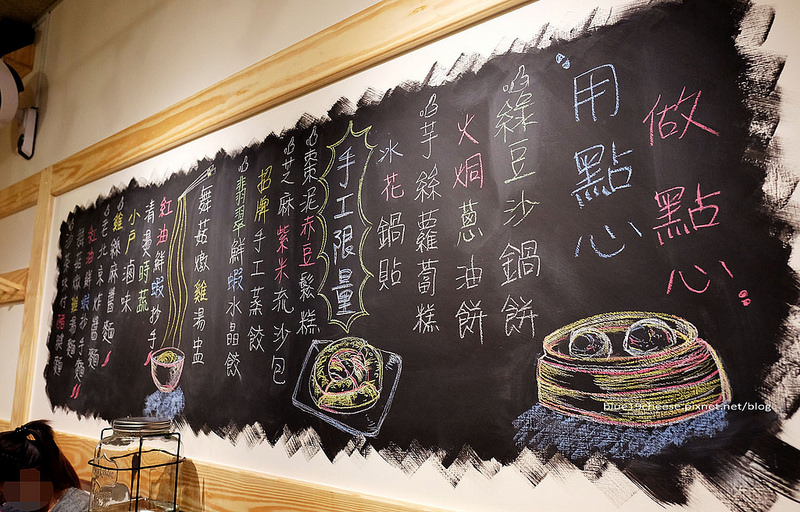 做點心
用點心
綠豆沙鍋餅
火焗蔥油餅
芋絲蘿蔔糕
冰花鍋貼
手工限量
棗泥赤豆鬆糕
芝麻紫米流沙包
招牌手工蒸餃
翡翠鮮蝦水晶餃
舞菇燉雞湯盅
紅油鮮蝦抄手
清燙時蔬
小戶滷味
雞絲麻醬麵
老北京炸醬麵
紅油鮮蝦
blue19cheese.pixnet.net/blog